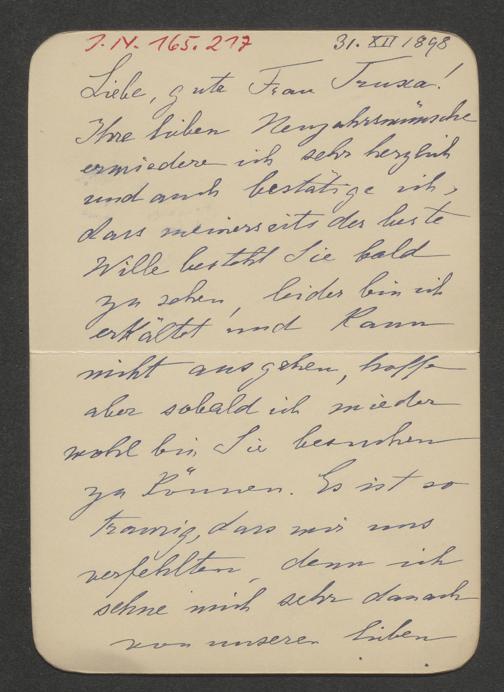 J.N. 165.217
31. XII 1898
Liebe, gute Frau Truxa!
Ihre lieben Neujahrswünsche
erwiedere ich sehr herzlich
und auch bestätige ich,
dass meinerseits der beste
Wille besteht Sie bald
zu sehen, leider bin ich
erkältet und kann
nicht ausgehen, hoffe
aber sobald ich wieder
wohl bin Sie besuchen
zu können. Es ist so
traurig, dass wir uns
verfehlten, denn ich
sehne mich sehr danach
von unseren lieben